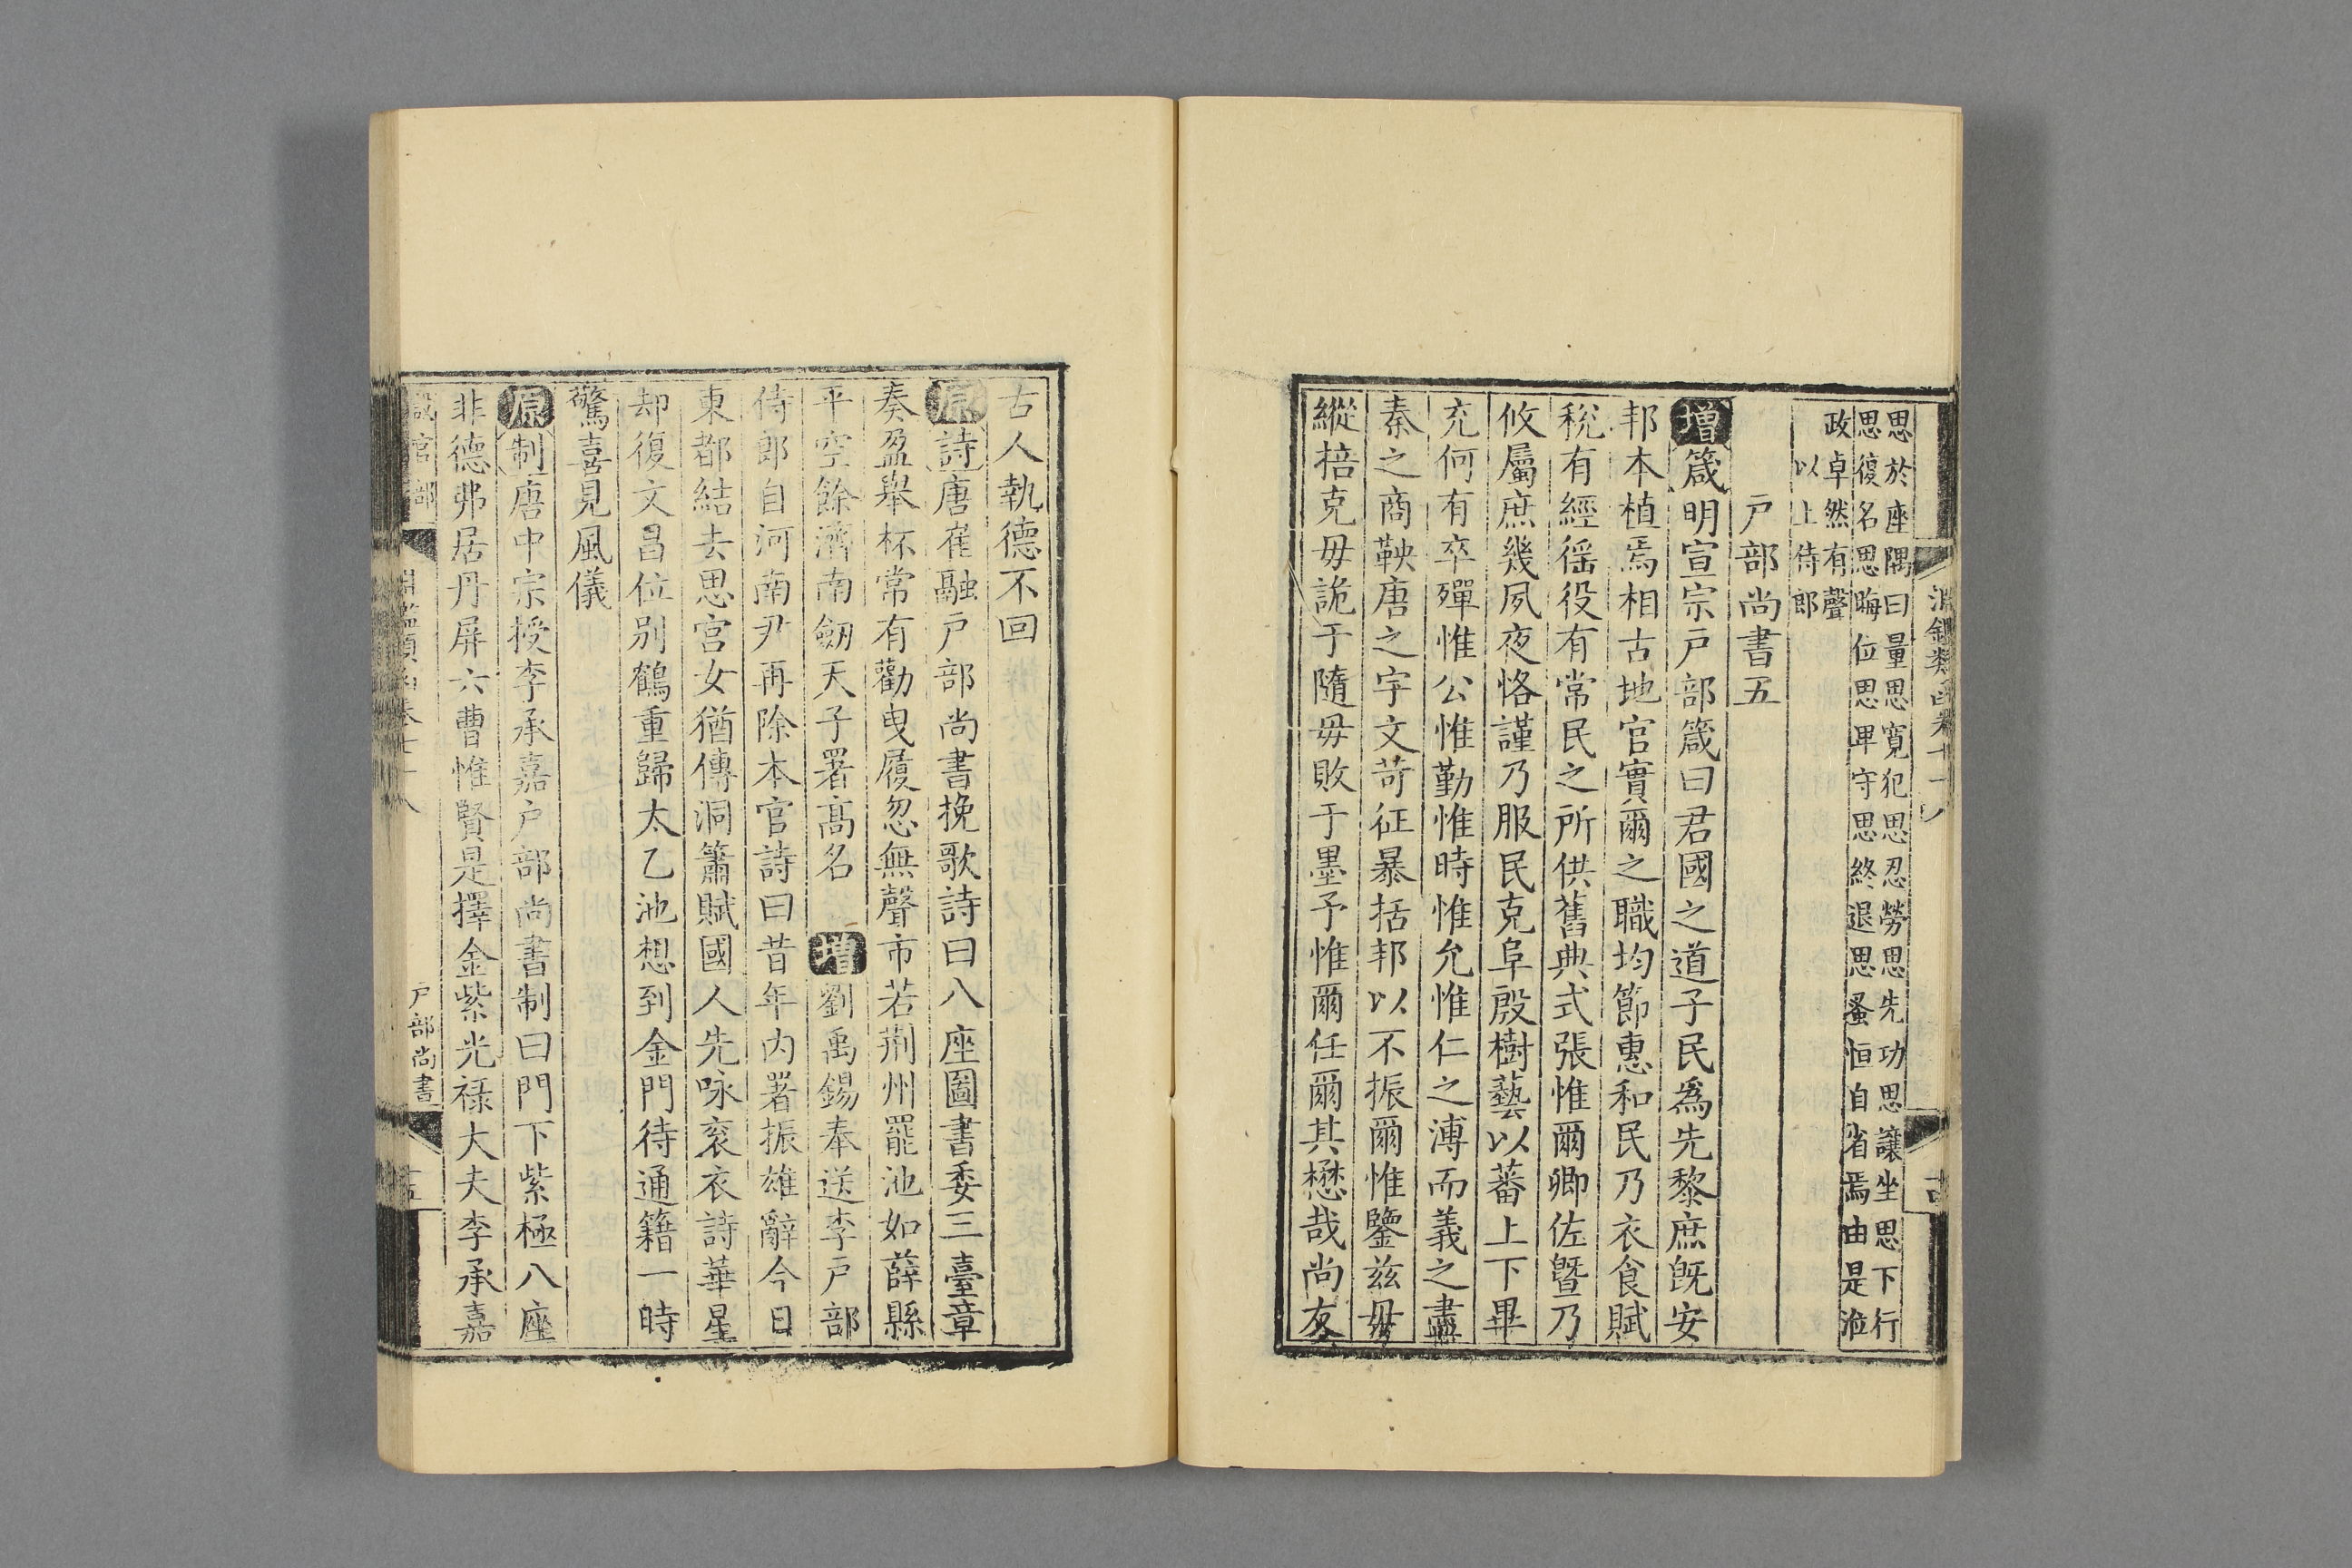 淵鑑類函卷七十八
思於座隅曰量思寬犯思忍勞思先功思讓坐思下行
思復名思晦位思畢守思終退思蚤恒自省焉由是涖
政卓然有聲
以上侍郎
戶部尚書五
增箴明宣宗戶部箴曰君國之道子民爲先黎庶旣安
邦本植焉相古地官實爾之職均節惠和民乃衣食賦
稅有經徭役有常民之所供舊典式張惟爾卿佐曁乃
攸屬庶幾夙夜恪謹乃服民克阜殷樹藝以蕃上下畢
充何有卒殫惟公惟勤惟時惟允惟仁之溥而義之盡
秦之商鞅唐之宇文苛征暴括邦以不振爾惟鑒兹毋
縱掊克毋詭于隨毋敗于墨予惟爾任爾其懋哉尚友
古人執德不回
原詩唐崔融戶部尚書挽歌詩曰八座圖書委三臺章
奏盈舉杯常有勸曳履忽無聲市若荊州罷池如薛縣
平空餘濟南劒天子署高名 增劉禹錫奉送李戶部
侍郎自河南尹再除本官詩曰昔年内署振雄辭今日
東都結去思宮女猶傳洞簫賦國人先咏衮衣詩華星
却復文昌位别鶴重歸太乙池想到金門待通籍一時
驚喜見風儀
原制唐中宗授李承嘉戶部尚書制曰門下紫極八座
非德弗居丹屏六曹惟賢是擇金紫光禄大夫李承嘉
設官部
淵鑑類函卷七十八
戶部尚書